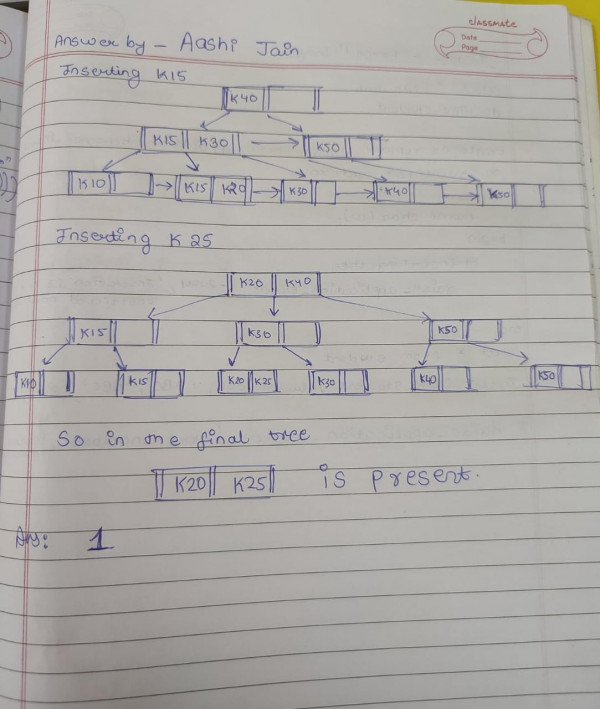 classmate
Date
Page
Answer by - Aashi Jain
Inserting K15
K40
K15 K30 K50
K10 K15 K20 K30 K40 K50
Inserting K 25
K20 K40
K15 K30 K50
K10 K15 K20 K25 K30 K40 K50
So in the final tree
K20 K25 is present.
Ans: 1